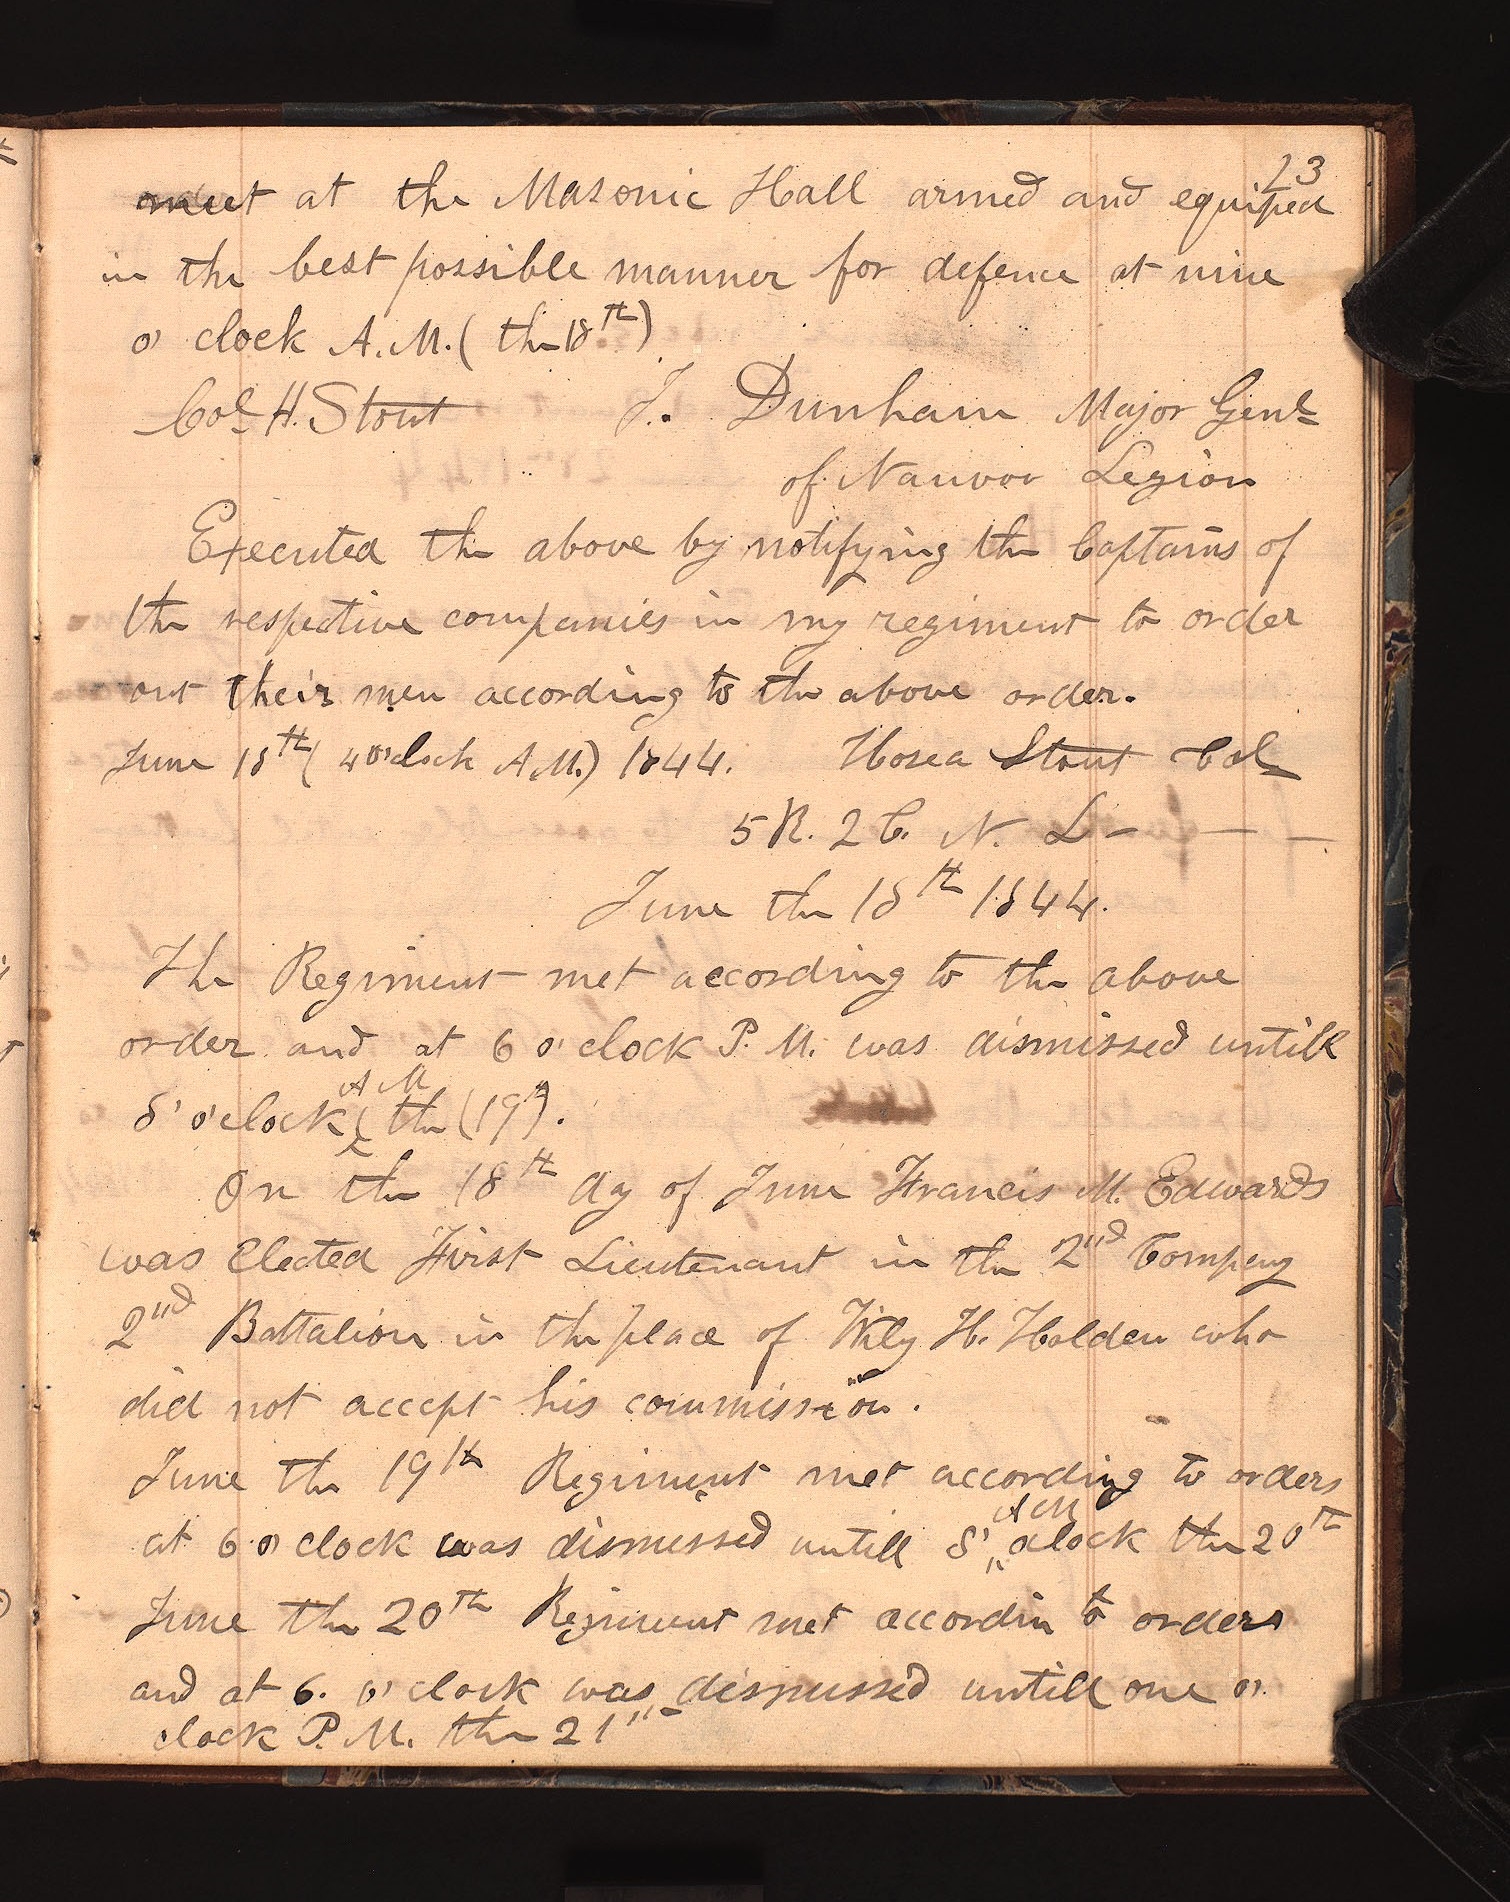 23
meet at the Masonic Hall armed and equiped
in the best possible manner for defence at nine
o' clock A.M. (the 18th)
Col H. Stout J. Dunham Major Genl
of Nauvoo Legion
Executed the above by notifying the Captains of
the respective companies in my regiment to order
out their men according to the above order.
June 18th (4 o'clock A.M.) 1844. Hosea Stout Col
5 R. 2 C. N. L - - -
June the 18th 1844.
The Regiment met according to the above
order and at 6 o' clock P. M. was dismissed untill
A M
8' o'clock ( the (19th).
On the 18th day of June Francis M. Edwards
was Elected First Lieutenant in the 2nd Company
2nd Battalion in the place of Wily H. Holden who
did not accept his commission.
June the 19th Regiment met according to orders
A M
at 6 o' clock was dismissed untill 8' oclock the 20th
June the 20th Regiment met accordin to orders
and at 6. o' clock was dismissed untill one o'
clock P. M. the 21"